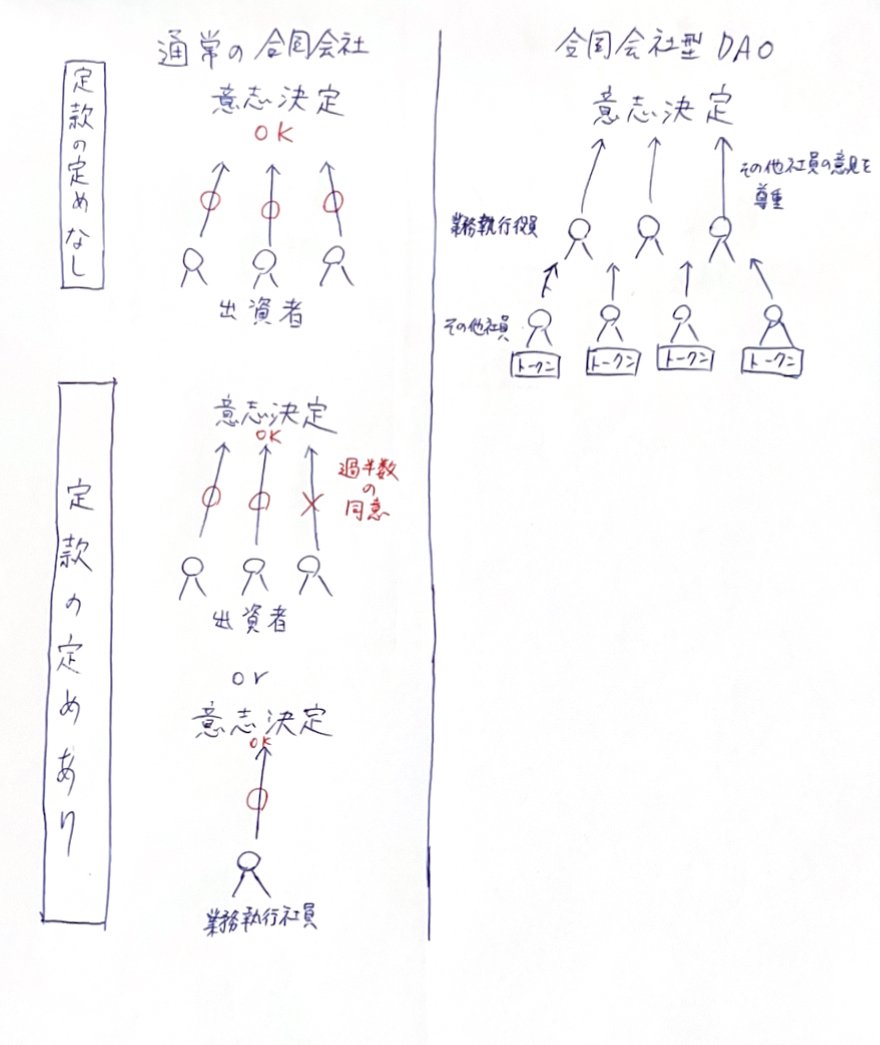 通常の合同会社
定款の定めなし
意志決定
OK
出資者
定款の定めあり
意志決定
OK
過半数
の
同意
出資者
or
意志決定
OK
業務執行社員
合同会社型DAO
意志決定
その他社員の意見を
尊重
業務執行役員
その他社員
トークン
トークン
トークン
トークン